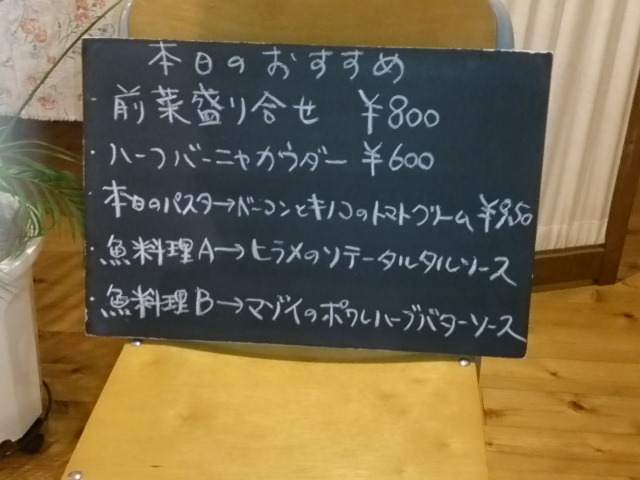 本日のおすすめ
・前菜盛り合せ ¥800
・ハーフバーニャカウダー ¥600
本日のパスタ→ベーコンとキノコのトマトクリーム ¥950
・魚料理A→ヒラメのソテータルタルソース
・魚料理B→マゾイのポワレハーブバターソース